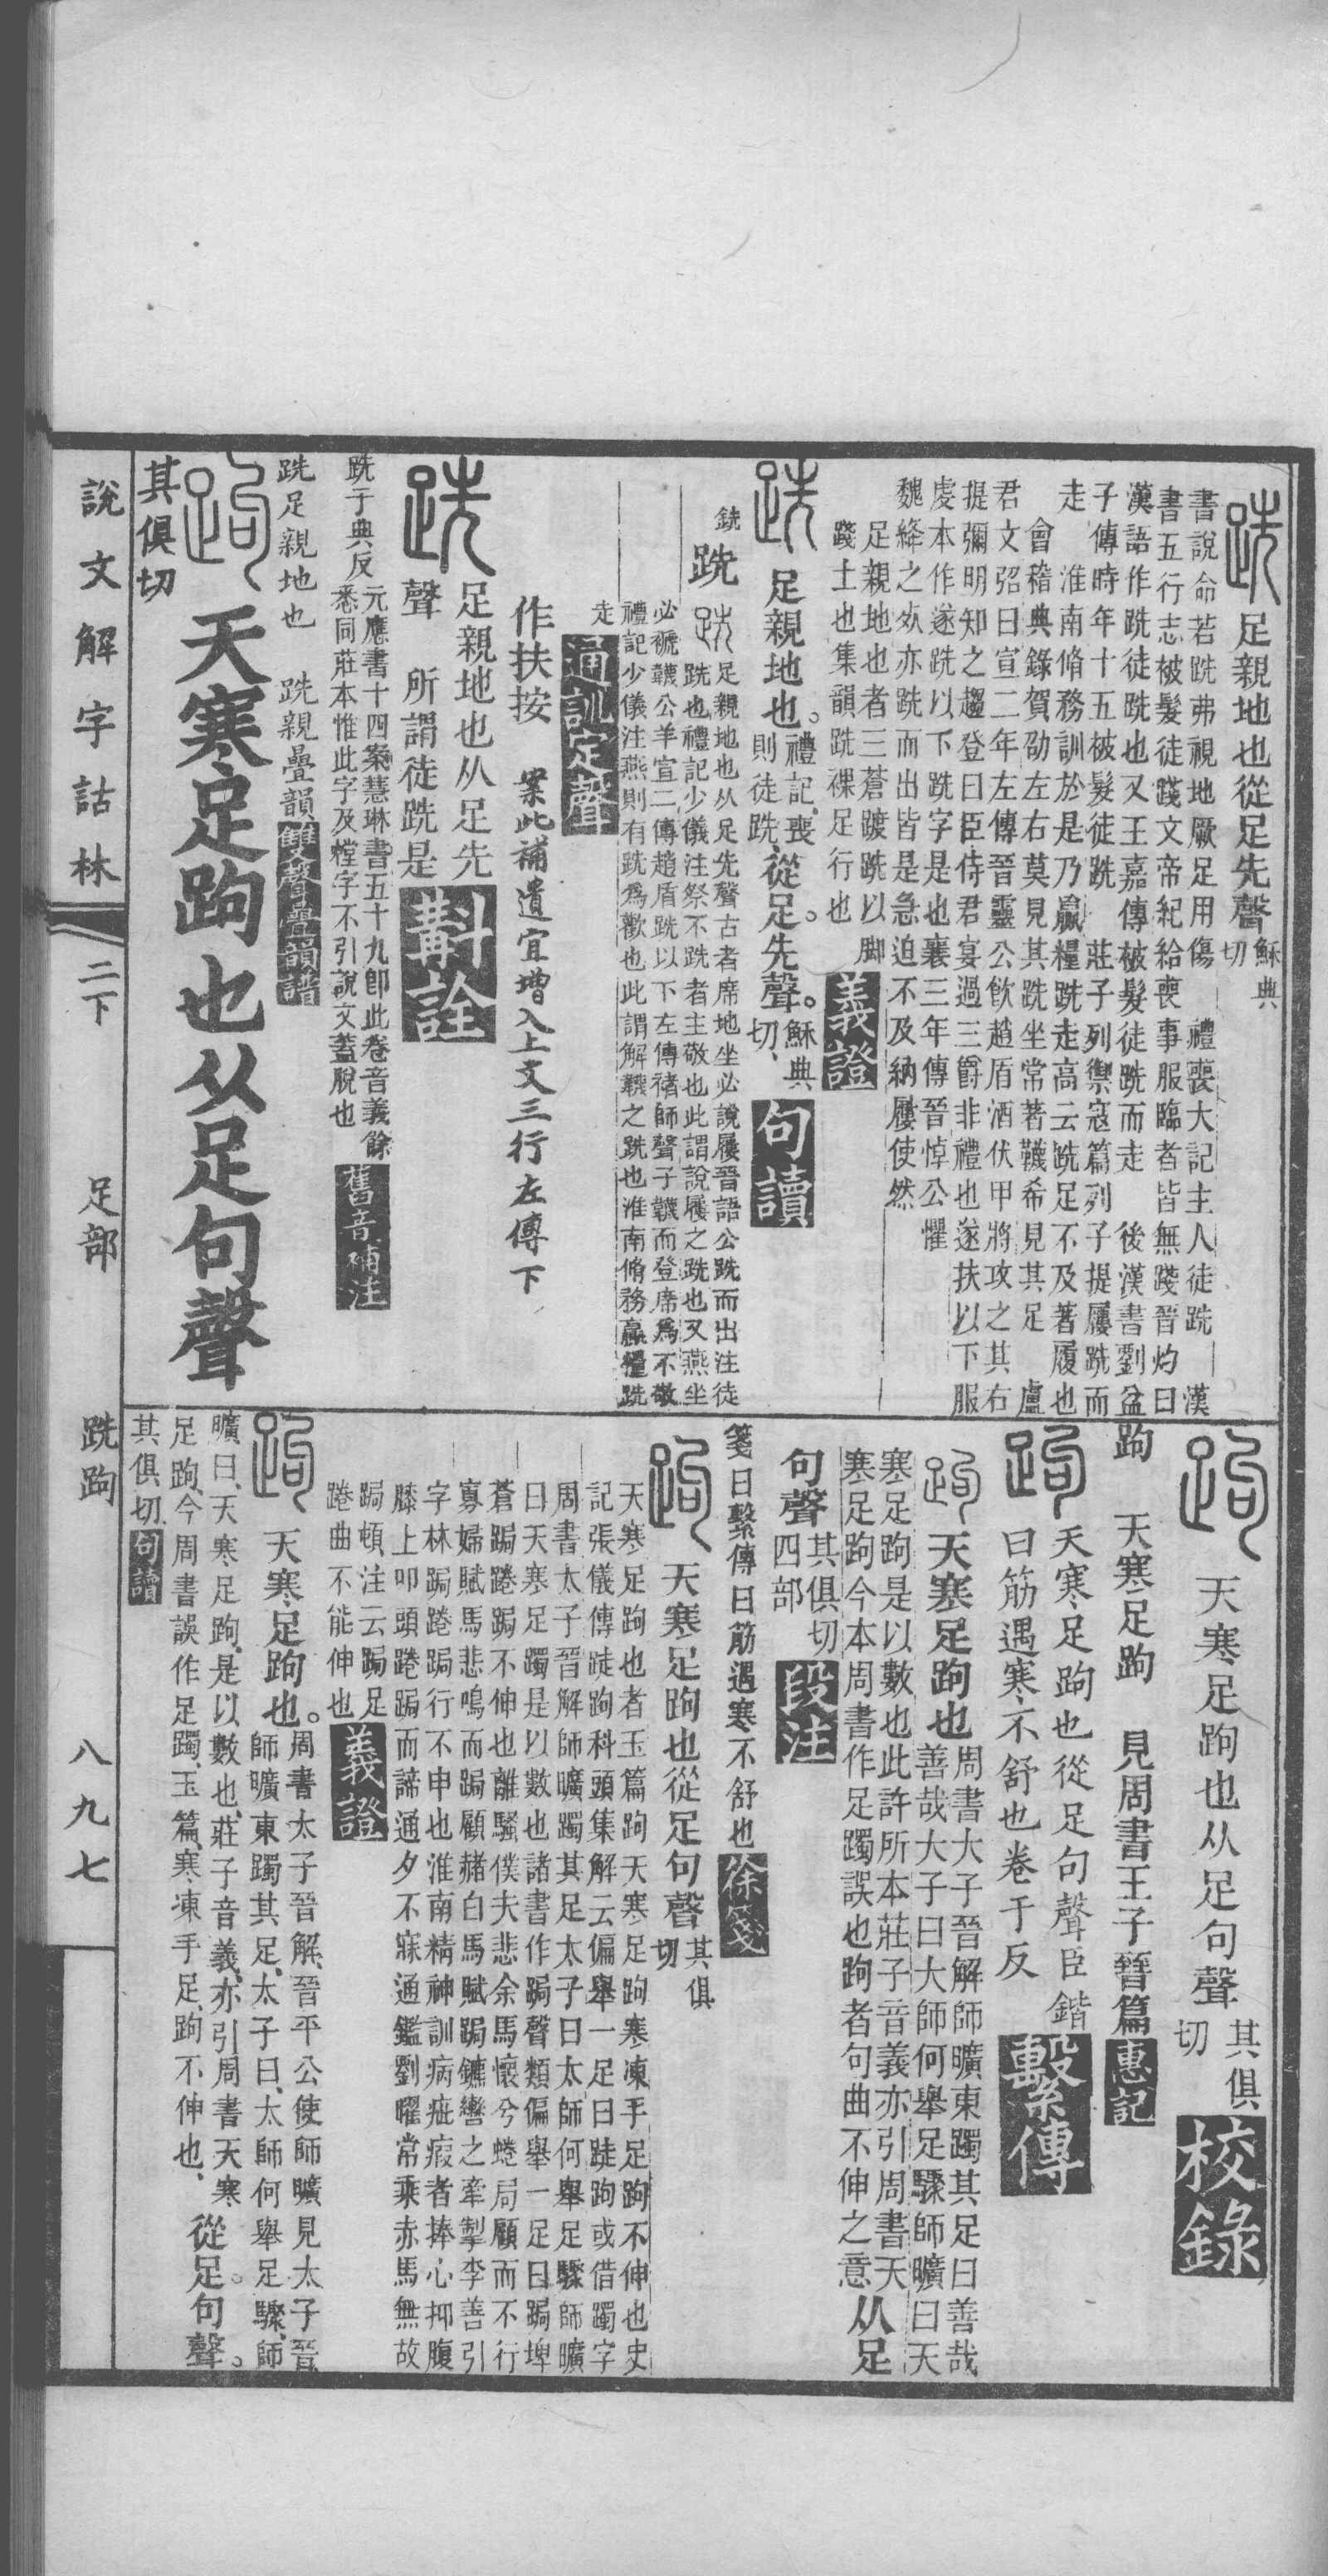 跣足親地也從足先聲穌典切
書說命若跣弗視地厥足用傷　禮喪大記主人徒跣　漢
書五行志被髮徒踐文帝紀給喪事服臨者皆無踐晉灼曰
漢語作跣徒跣也又王嘉傳被髮徒跣而走　後漢書劉盆
子傳時年十五被髮徒跣　莊子列禦寇篇列子提屨跣而
走　淮南脩務訓於是乃贏糧跣走高云跣足不及著履也
會稽典錄賀劭左右莫見其跣坐常著韤希見其足　盧
君文弨曰宣二年左傳晉靈公飲趙盾酒伏甲將攻之其右
提彌明知之趨登曰臣侍君宴過三爵非禮也遂扶以下服
虔本作遂跣以下跣字是也襄三年傳晉悼公懼
魏絳之㱾亦跣而出皆是急迫不及納屨使然
足親地也者三蒼踱跣以脚
踐土也集韻跣裸足行也義證
跣足親地也。禮記、喪則徒跣、從足。先聲。穌典切、句讀
銑　跣　跣足親地也从足先聲古者席地坐必說屨晉語公跣而出注徒
跣也禮記少儀注祭不跣者主敬也此謂說屨之跣也又燕坐
必褫韤公羊宣二傳趙盾跣以下左傳褚師聲子韤而登席爲不敬
禮記少儀注燕則有跣爲歡也此謂解韤之跣也淮南脩務贏糧跣
走通訓定聲
作扶按　案此補遺宜增入上文三行左傳下
跣足親地也从足先
聲　所謂徒跣是斠詮
跣于典反元應書十四案慧琳書五十九卽此卷音義餘
悉同莊本惟此字及蟶字不引說文蓋脫也舊音補注
跣足親地也　跣親疊韻雙聲疊韻譜
跔天寒足跔也从足句聲
其俱切
跔天寒足跔也从足句聲其俱切校錄
跔　天寒足跔　見周書王子晉篇惠記
跔天寒足跔也從足句聲臣鍇
曰筋遇寒不舒也卷于反繫傳
跔天寒足跔也周書大子晉解師曠東躅其足曰善哉
善哉大子曰大師何舉足驟師曠曰天
寒足跔是以數也此許所本莊子音義亦引周書天
寒足跔今本周書作足躅誤也跔者句曲不伸之意从足
句聲其俱切四部段注
箋曰繫傳曰筋遇寒不舒也徐箋
跔天寒足跔也從足句聲其俱切
天寒足跔也者玉篇跔天寒足跔寒凍手足跔不伸也史
記張儀傳跿跔科頭集解云偏舉一足曰跿跔或借躅字
周書太子晉解師曠躅其足太子曰太師何舉足驟師曠
曰天寒足躅是以數也諸書作跼聲類偏舉一足曰跼埤
蒼跼踡跼不伸也離騷僕夫悲余馬懷兮蜷局顧而不行
寡婦賦馬悲鳴而跼顧赭白馬賦跼鑣轡之牽掣李善引
字林跼踡跼行不申也淮南精神訓病疵瘕者捧心抑腹
膝上叩頭踡跼而諦通夕不寐通鑑劉曜常乘赤馬無故
跼頓注云跼足
踡曲不能伸也義證
跔天寒足跔也。周書太子晉解、晉平公使師曠見太子晉
師曠東躅其足、太子曰、太師何舉足驟、師
曠曰、天寒足跔、是以數也、莊子音義、亦引周書天寒
足跔、今周書誤作足躅、玉篇、寒凍手足、跔不伸也、從足。句聲。
其俱切、句讀
說文解字詁林　二下　足部　跣跔　八九七